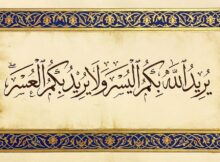 يُرِيدُ اللَّهُ بِكُمُ الْيُسْرَ وَلَا يُرِيدُ بِكُمُ الْعُسْرَ